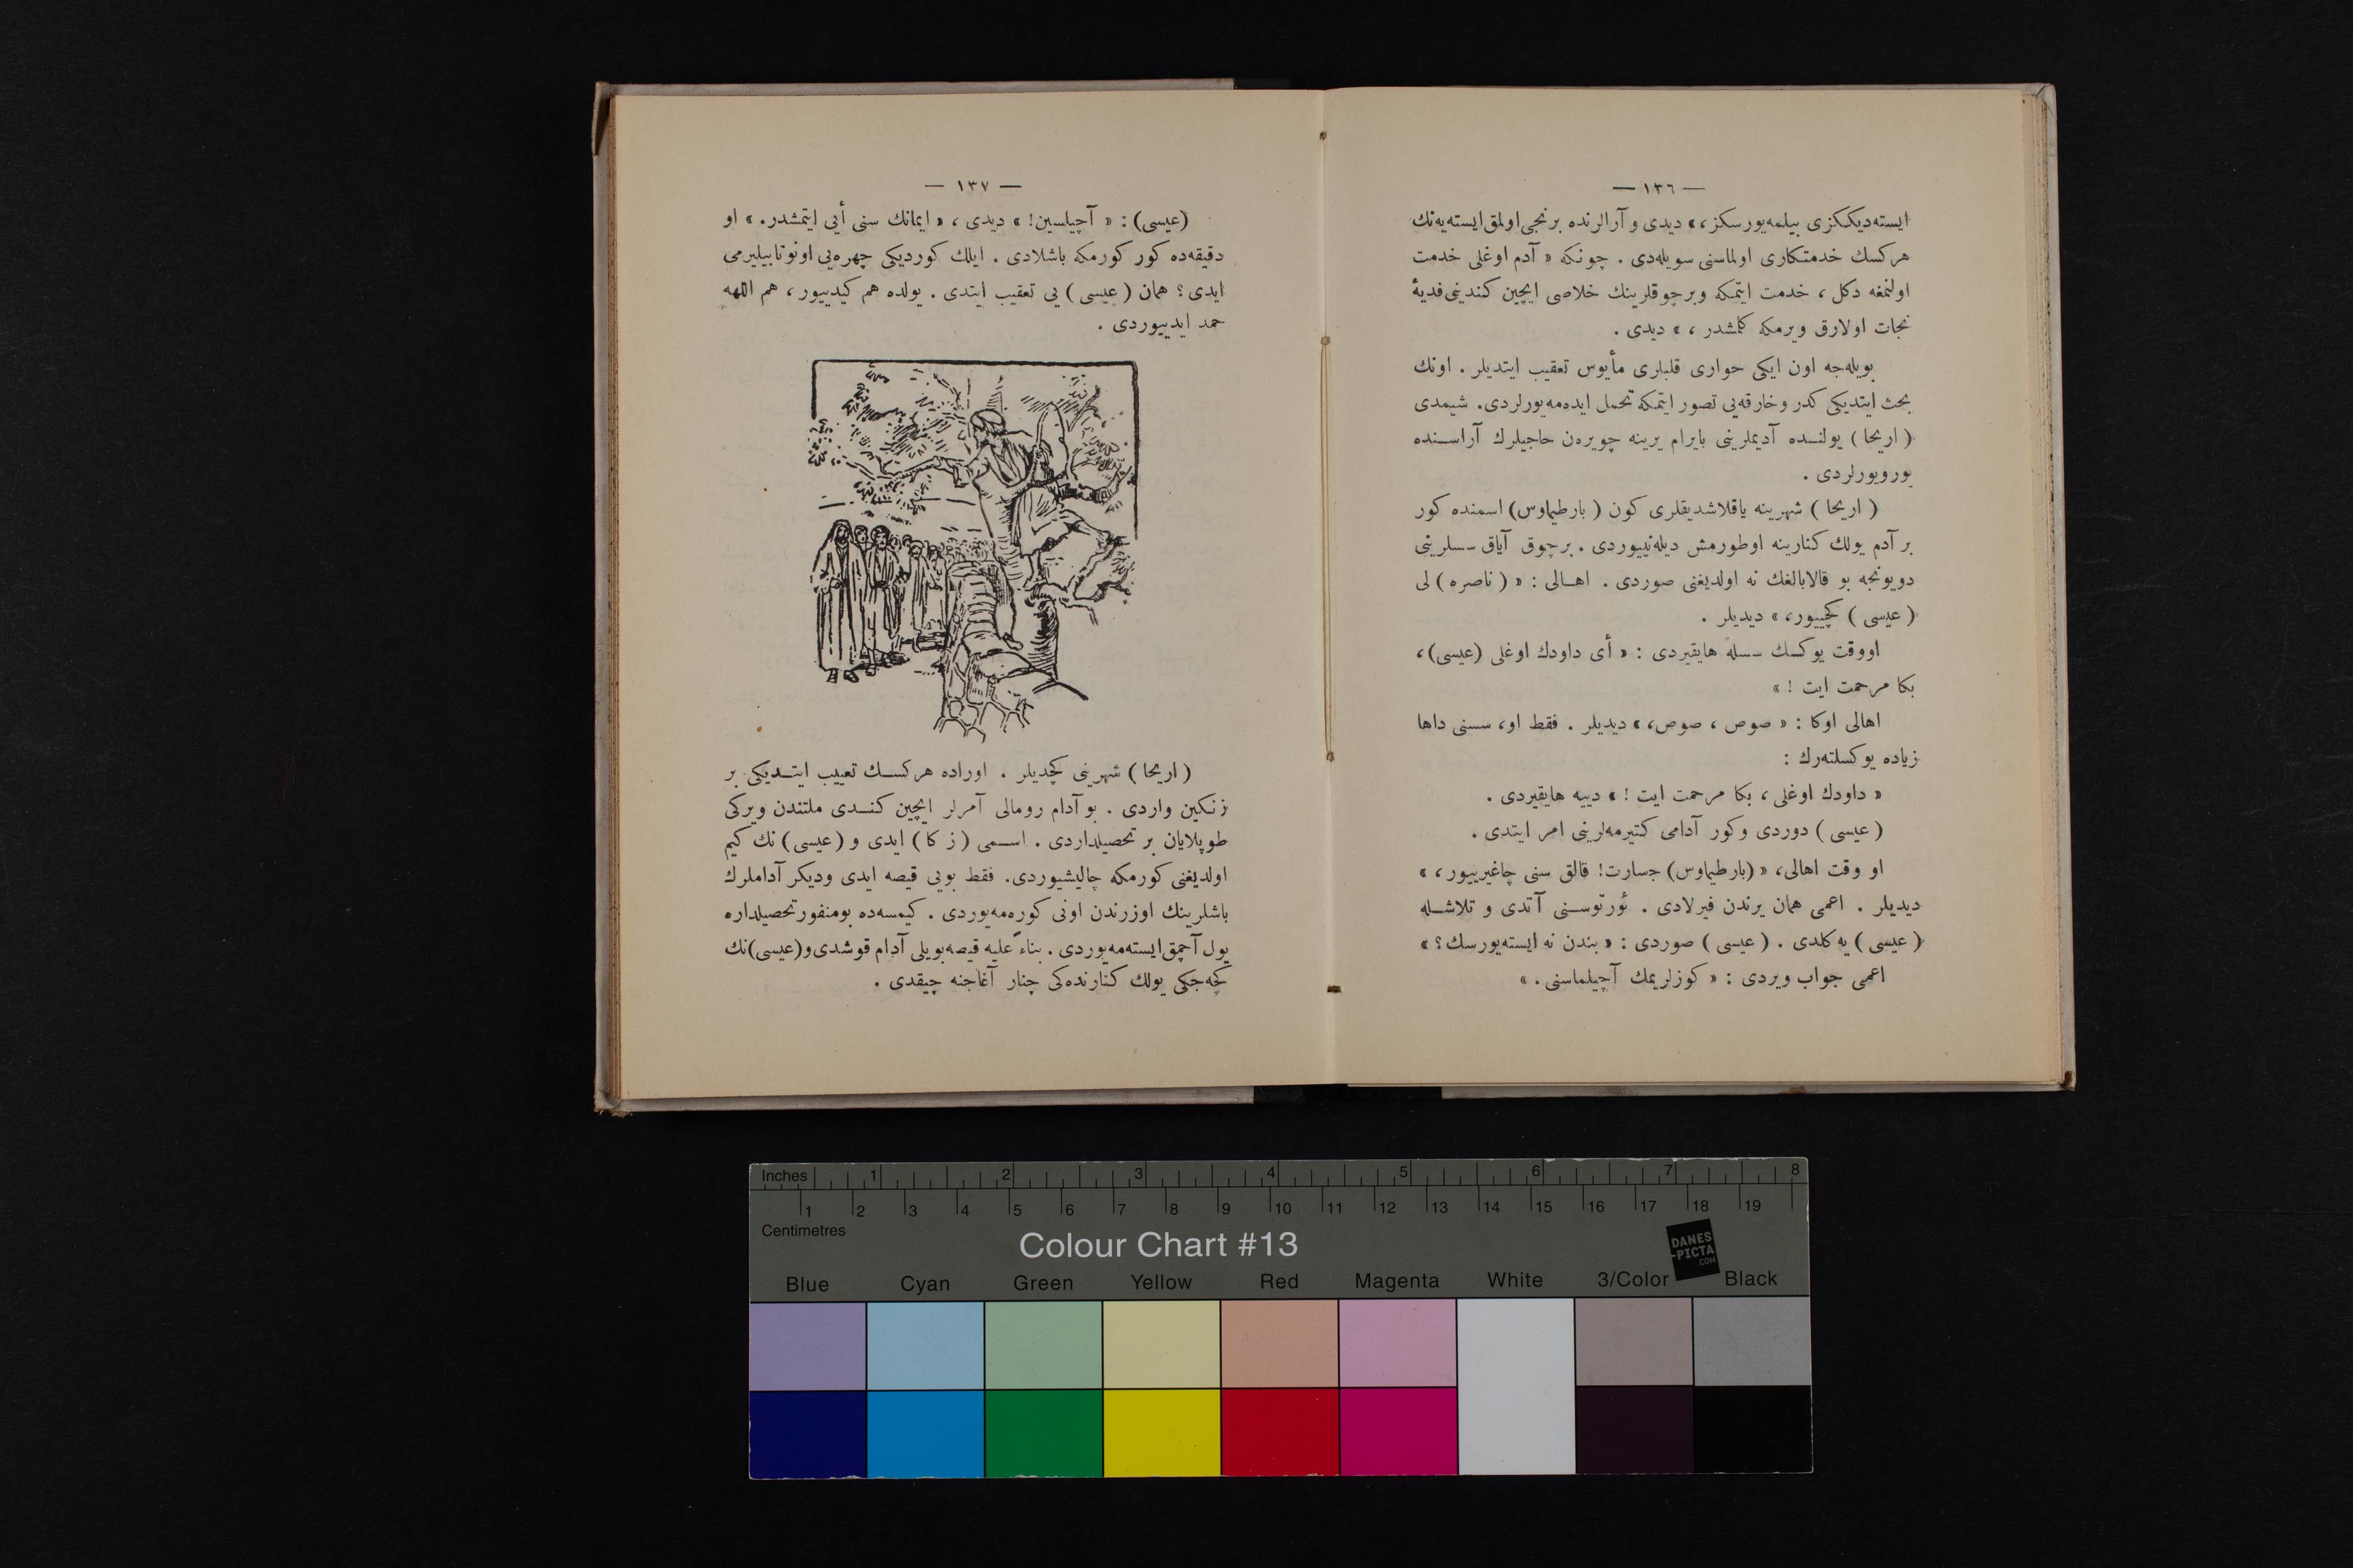 — ١٣٦ —
ایسته‌دیككزی بیلمه‌یورسكز،» دیدی و آرالرنده برنجی اولمق ایسته‌یه‌نك
هركسك خدمتكاری اولماسنی سویله‌دی . چونكه « آدم اوغلی خدمت
اولنمغه دكل ، خدمت ایتمكه وبرچوقلرینك خلاصی ایچین كندینی فدیهٔ
نجات اولارق ویرمكه كلمشدر ، » دیدی .
بویله‌جه اون ایكی حواری قلبلری مأیوس تعقیب ایتدیلر . اونك
بحث ایتدیكی كدر وخارقه‌یی تصور ایتمكه تحمل ایده‌مه‌یورلردی. شیمدی
( اریحا ) یولنده آدیملرینی بایرام یرینه چویره‌ن حاجیلرك آراسنده
یورویورلردی .
( اریحا ) شهرینه یاقلاشدیقلری كون ( بارطیماوس) اسمنده كور
بر آدم یولك كنارینه اوطورمش دیله‌نییوردی . برچوق آیاق سسلرینی
دویونجه بو قالابالغك نه اولدیغنی صوردی . اهالی : « ( ناصره ) لی
( عیسی ) كچییور، » دیدیلر .
اووقت یوكسك سسله هایقیردی : « أی داودك اوغلی (عیسی) ،
بكا مرحمت ایت ! »
اهالی اوكا : « صوص ، صوص، » دیدیلر . فقط او، سسنی داها
زیاده یوكسلته‌رك :
« داودك اوغلی ، بكا مرحمت ایت ! » دییه هایقیردی .
( عیسی ) دوردی وكور آدامی كتیرمه‌لرینی امر ایتدی .
او وقت اهالی، « (بارطیماوس) جسارت! قالق سنی چاغیرییور ، »
دیدیلر . اعمی همان یرندن فیرلادی . ئورتوسنی آتدی و تلاشله
( عیسی ) یه كلدی . ( عیسی ) صوردی : « بندن نه ایسته‌یورسك ؟ »
اعمی جواب ویردی : « كوزلریمك آچیلماسنی . »
— ١٣٧ —
(عیسی) : « آچیلسین! » دیدی ، « ایمانك سنی أیی ایتمشدر. » او
دقیقه‌ده كور كورمكه باشلادی . ایلك كوردیكی چهره‌یی اونوتابیلیرمی
ایدی ؟ همان ( عیسی ) یی تعقیب ایتدی . یولده هم كیدییور ، هم اللهه
حمد ایدییوردی .
( اریحا ) شهرینی كچدیلر . اوراده هركسك تعییب ایتدیكی بر
زنكین واردی . بو آدام رومالی آمرلر ایچین كندی ملتندن ویركی
طوپلایان بر تحصیلداردی . اسمی (زكا ) ایدی و (عیسی) نك كیم
اولدیغنی كورمكه چالیشیوردی. فقط بویی قیصه ایدی ودیكر آداملرك
باشلرینك اوزرندن اونی كوره‌مه‌یوردی . كیمسه‌ده بومنفورتحصیلداره
یول آچمق ایسته‌مه‌یوردی . بناءً علیه قیصه بویلی آدام قوشدی و(عیسی)نك
كچه‌جكی یولك كنارنده‌كی چنار آغاجنه چیقدی .
Inches 1 2 3 4 5 6 7 8
1 2 3 4 5 6 7 8 9 10 11 12 13 14 15 16 17 18 19
Centimetres
Colour Chart #13
DANES
-PICTA
.COM
Blue Cyan Green Yellow Red Magenta White 3/Color Black